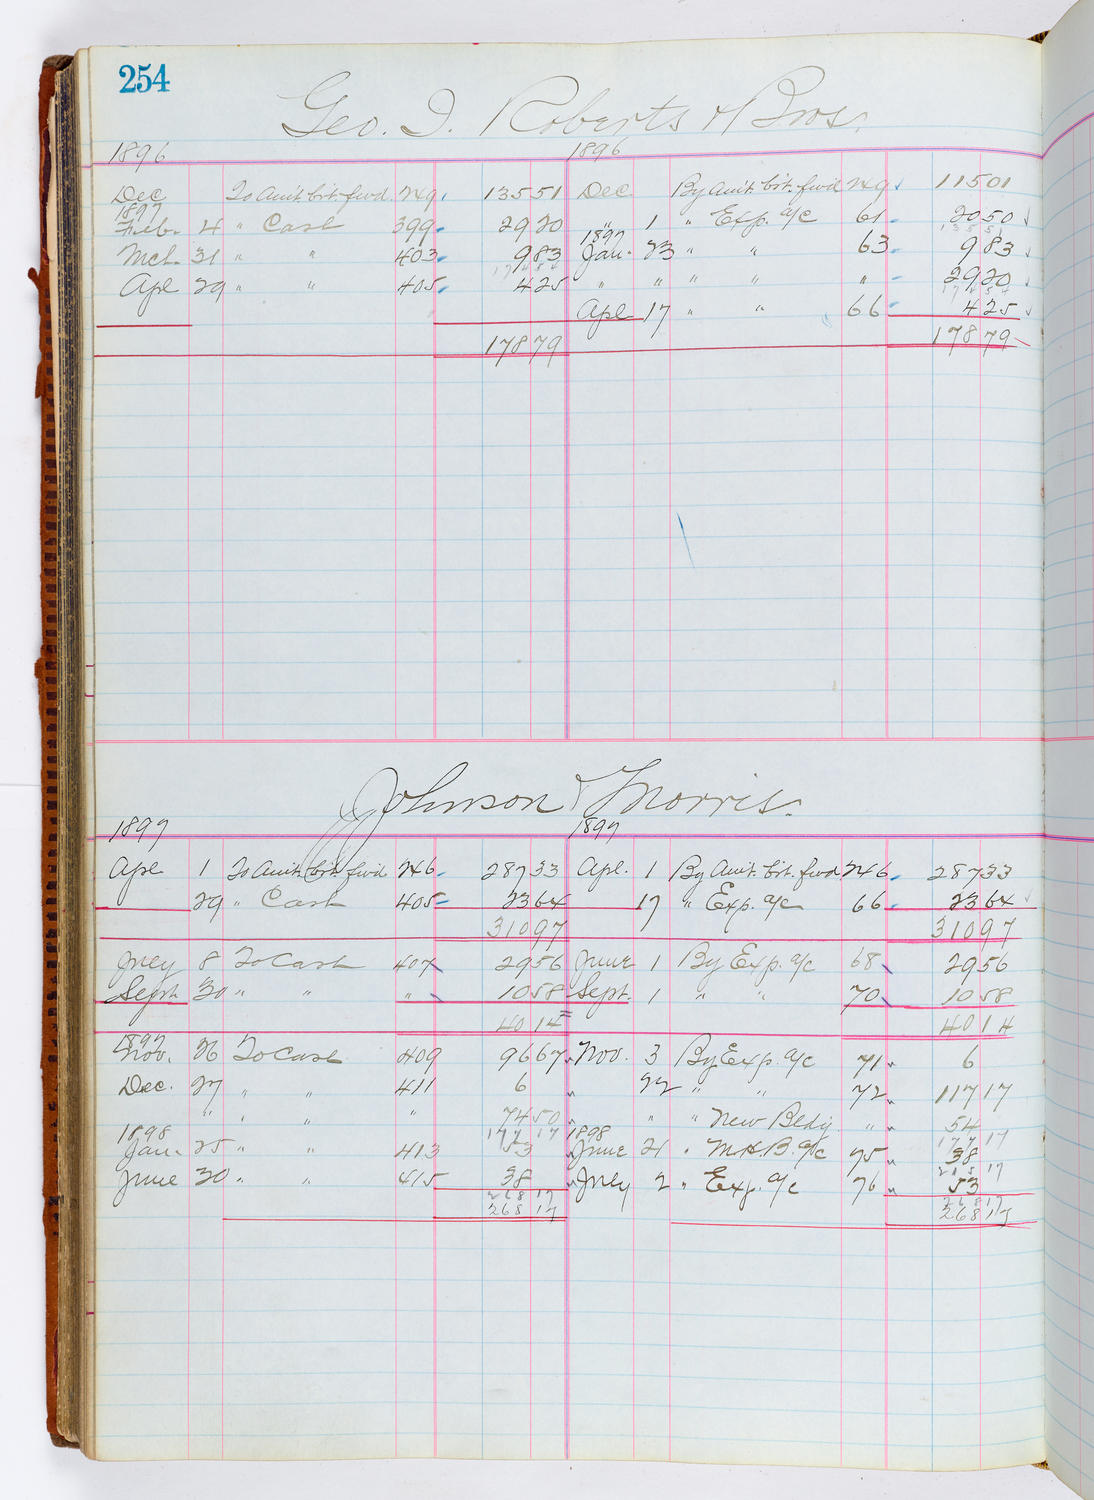 254
Geo. I. Roberts & Bros.
1896 1896
Dec To Amt. brt. fwd. 249 135 51 Dec. By Amt. brt. fwd 249 115 01
1897
Feb. 4 " Cash 399 29 20 " 1 " Exp. a/c 61 20 50
135 51
1897
Mch. 31 " " 403 9 83 Jan. 23 " " 63 9 83
174 54
Apl 29 " " 405 4 25 " " " " " 29 20
174 54
Apl 17 " " 66 4 25
178 79 178 79
Johnson & Morris.
1897 1897
Apl 1 To Amt. brt. fwd 246 287 33 Apl. 1 By Amt. brt. fwd 246 287 33
29 " Cash 405 23 64 17 " Exp. a/c 66 23 64
310 97 310 97
July 8 To Cash 407 29 56 June 1 By Exp. a/c 68 29 56
Sept. 30 " " " 10 58 Sept. 1 " " 70 10 58
40 14 40 14
1897
Nov. 26 To Cash 409 96 67 Nov. 3 By Exp. a/c 71 6
Dec. 27 " " 411 6 22 " " 72 117 17
" " " " 74 50 " " New Bldg " 54
177 17 177 17
1898 1898
Jan. 25 " " 413 53 June 21 " M.H.B. a/c 75 38
215 17
June 30 " " 415 38 July 2 " Exp. a/c 76 53
268 17 268 17
268 17 268 17